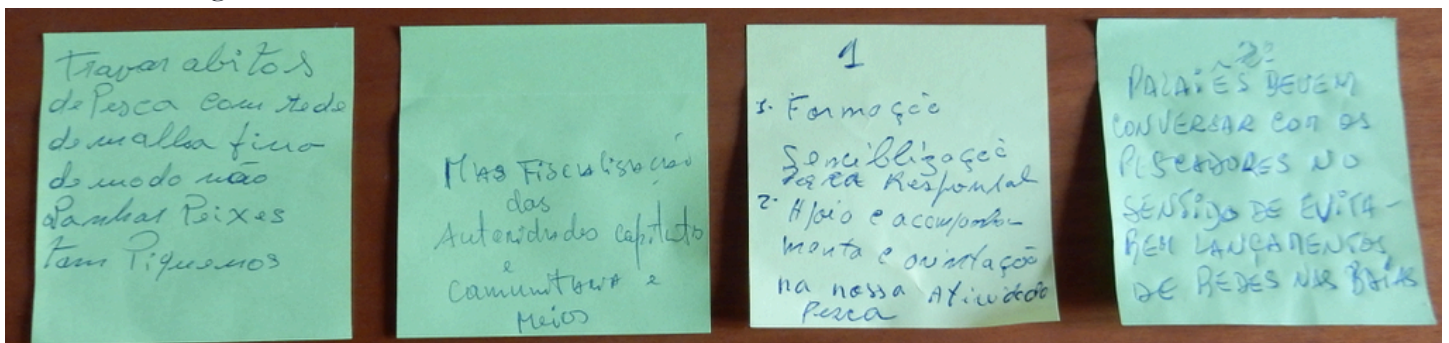 Travar abitos
de Pesca com rede
de malha fina
de modo não
apanhar Peixes
tam Piquenos
Mas Fiscalisração
das
Autoridades
e
comunitaria e
Meios
1
1. Formação
Senciblização
para Respontal
2. Apoio e acompanha-
mento e orientação
na nossa Atividade
Pesca
2º
PALAIÊS DEVEM
CONVERSAR COM OS
PESCADORES NO
SENTIDO DE EVITA-
REM LANÇAMENTOS
DE REDES NAS BAÍAS